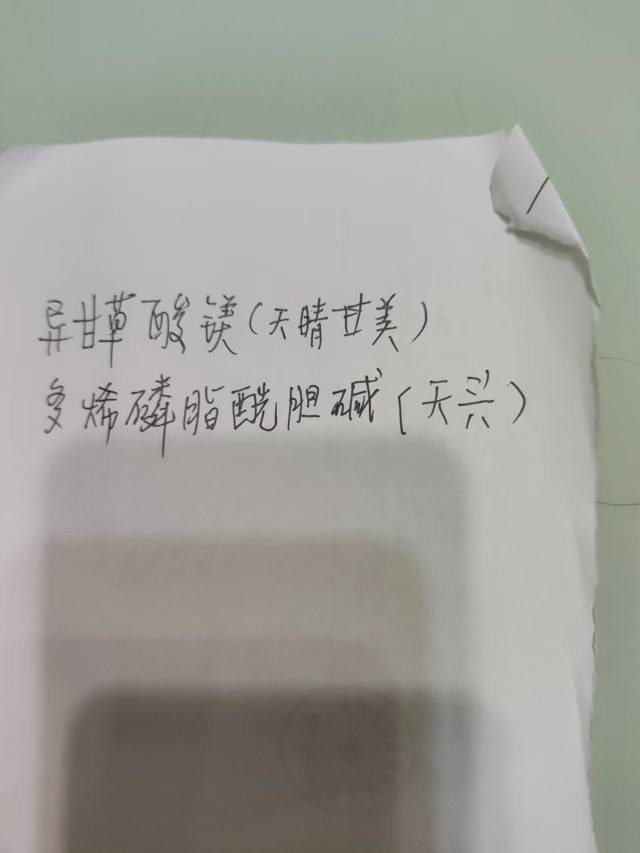 异甘草酸镁(天晴甘美)
多烯磷脂酰胆碱(天兴)